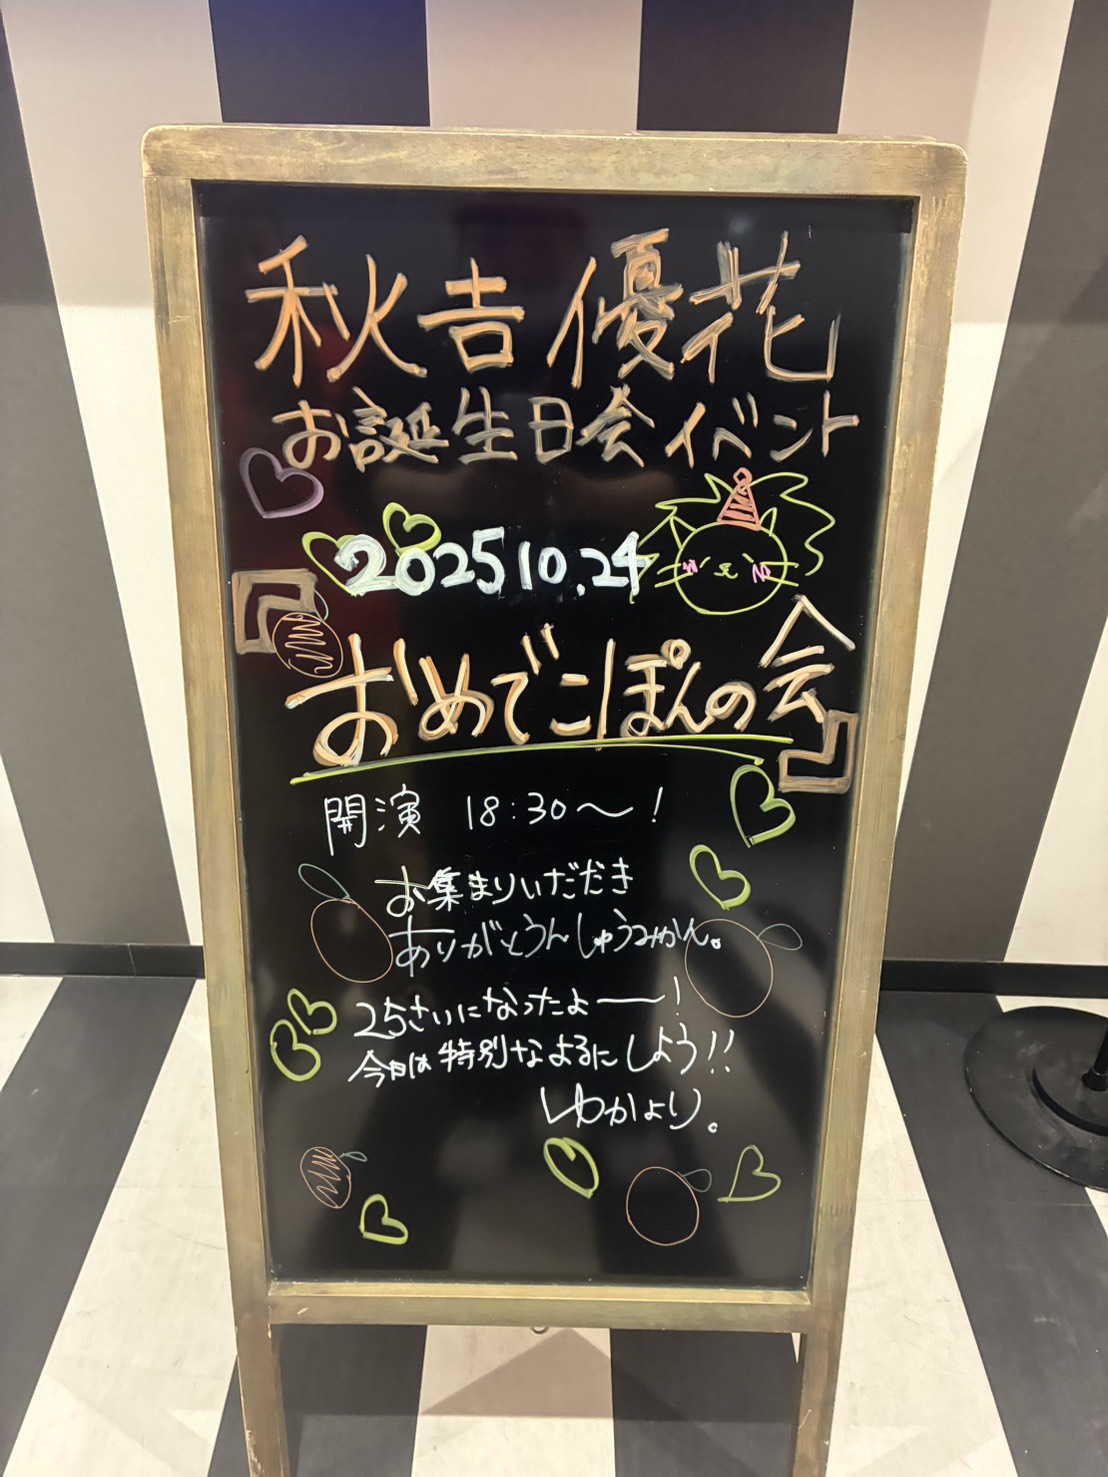 秋吉優花
お誕生日会イベント
2025 10.24
『おめでこぽんの会』
開演 18:30〜!
お集まりいただき
ありがとうんしゅうみかん。
25さいになったよーー!
今日は特別なよるにしよう!!
ゆかより。